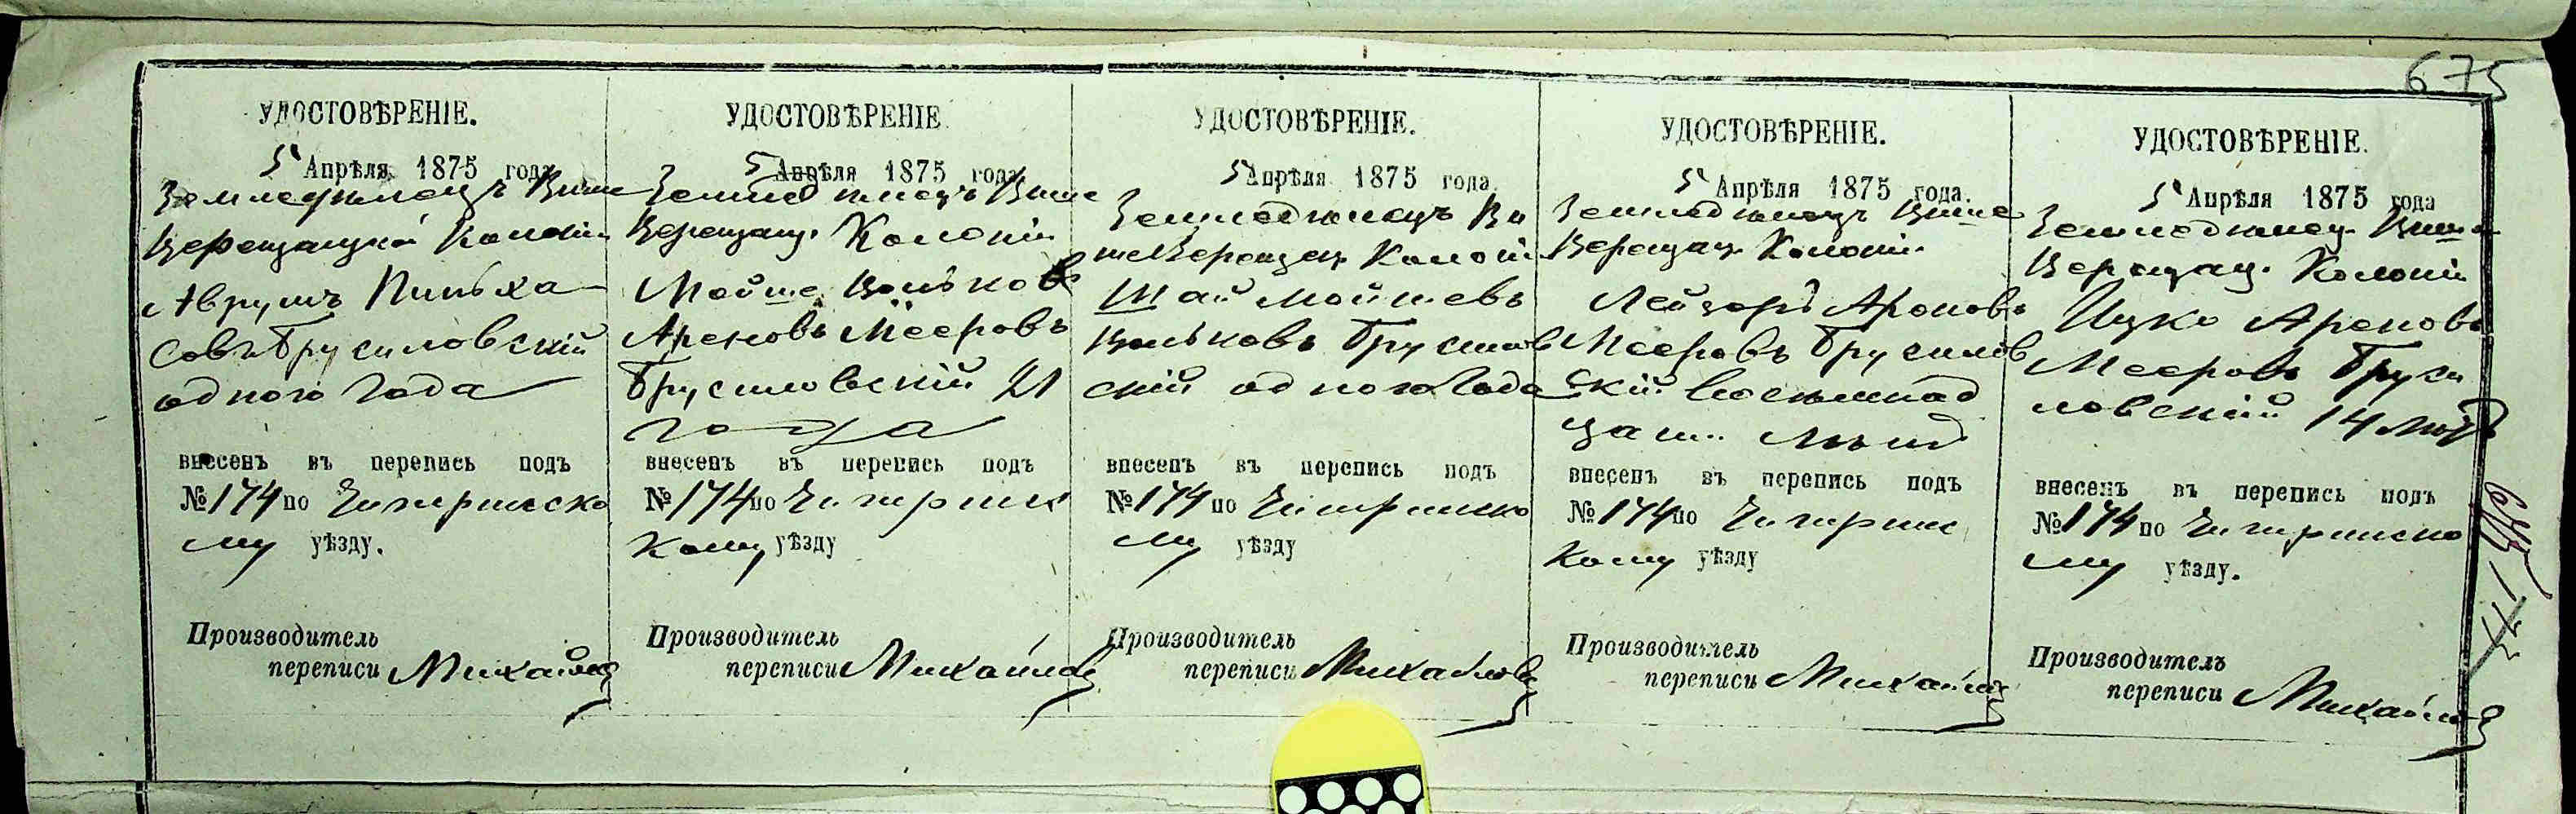 675
УДОСТОВѢРЕНІЕ.
5 Апрѣля 1875 года
Земледѣлецъ Више
Верещацкой Колоніи
Аврумъ Пинька
совъ Брусиловскій
одного года
внесенъ въ перепись подъ
№ 174 по Чигиринско
му уѣзду.
Производитель
переписи Михайловъ
УДОСТОВѢРЕНІЕ
5 Апрѣля 1875 года
Земледѣлецъ Више
Верещац. Колоніи
Мойше Вольковъ
Ароновъ Мееровъ
Брусиловскій 21
года
внесенъ въ перепись подъ
№ 174 по Чигиринс
кому уѣзду
Производитель
переписи Михайловъ
УДОСТОВѢРЕНІЕ.
5 Апрѣля 1875 года
Земледѣлецъ Ви
шеВерещац Колоніи
Шая Мойшевъ
Вольковъ Брусилов
скій одного Года
внесенъ въ перепись подъ
№ 174 по Чигиринско
му уѣзду
Производитель
переписи Михайловъ
УДОСТОВѢРЕНІЕ.
5 Апрѣля 1875 года.
Земледѣлецъ Више
Верещац. Колоніи
Лейзоръ Ароновъ
Мееровъ Брусилов
скій восемнад
цати лѣтъ
внесенъ въ перепись подъ
№ 174 по Чигиринс
кому уѣзду
Производитель
переписи Михайловъ
УДОСТОВѢРЕНІЕ.
5 Апрѣля 1875 года
Земледѣлец. Више
Верещац. Колоніи
Ицко Ароновъ
Мееровъ Бруси
ловскій 14 лѣтъ
внесенъ въ перепись подъ
№ 174 по Чигиринско
му уѣзду.
Производитель
переписи Михайловъ